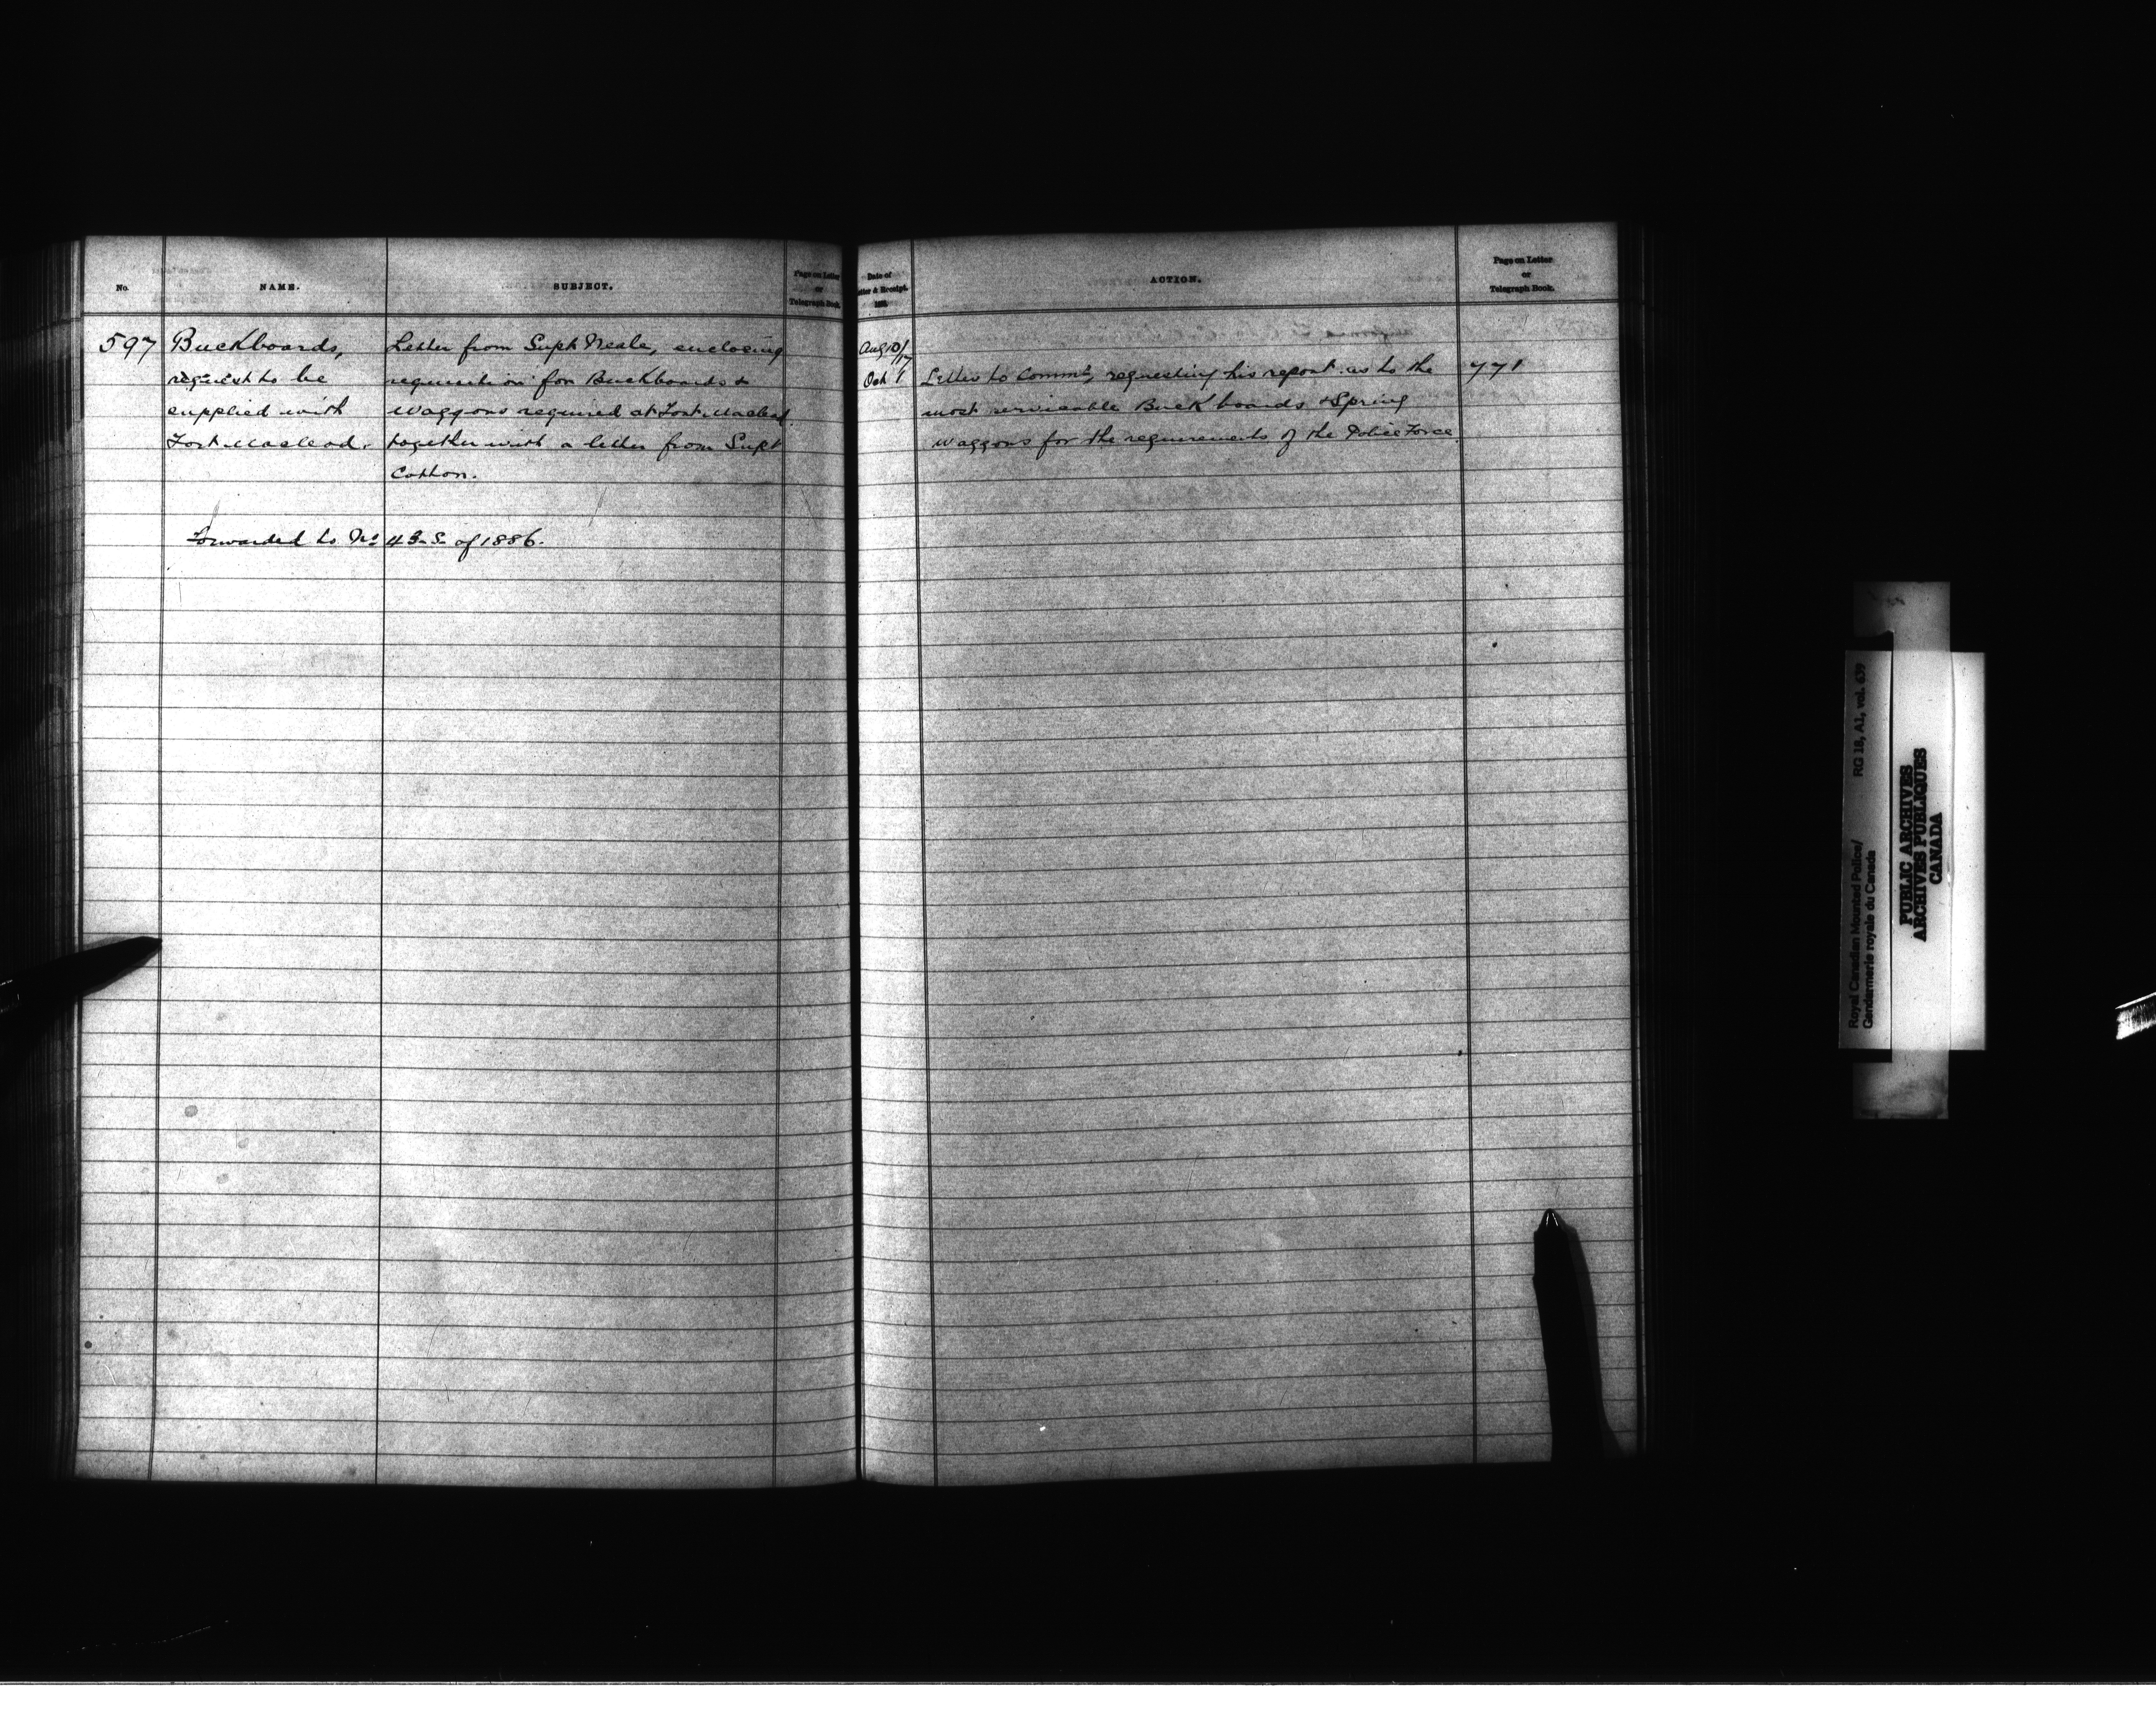 No.
NAME.
SUBJECT.
Page on Letter
or
Telegraph Book.
597
Buckboards,
request to be
supplied with
Fort Macleod.
Letter from Supt Neale, enclosing
requisition for Buckboards &
waggons required at Fort Macleod
together with a letter from Supt
Cotton.
Forwarded to No 43-S- of 1886.
Date of
Letter & Receipt.
188
ACTION.
Page on Letter
or
Telegraph Book.
Aug 10/17
Oct 1
Letter to Commr, requesting his report as to the
most servicable Buckboards & Spring
waggons for the requirements of the Police Force.
771
Royal Canadian Mounted Police/ RG 18, A1, vol. 639
Gendarmerie royale du Canada
PUBLIC ARCHIVES
ARCHIVES PUBLIQUES
CANADA